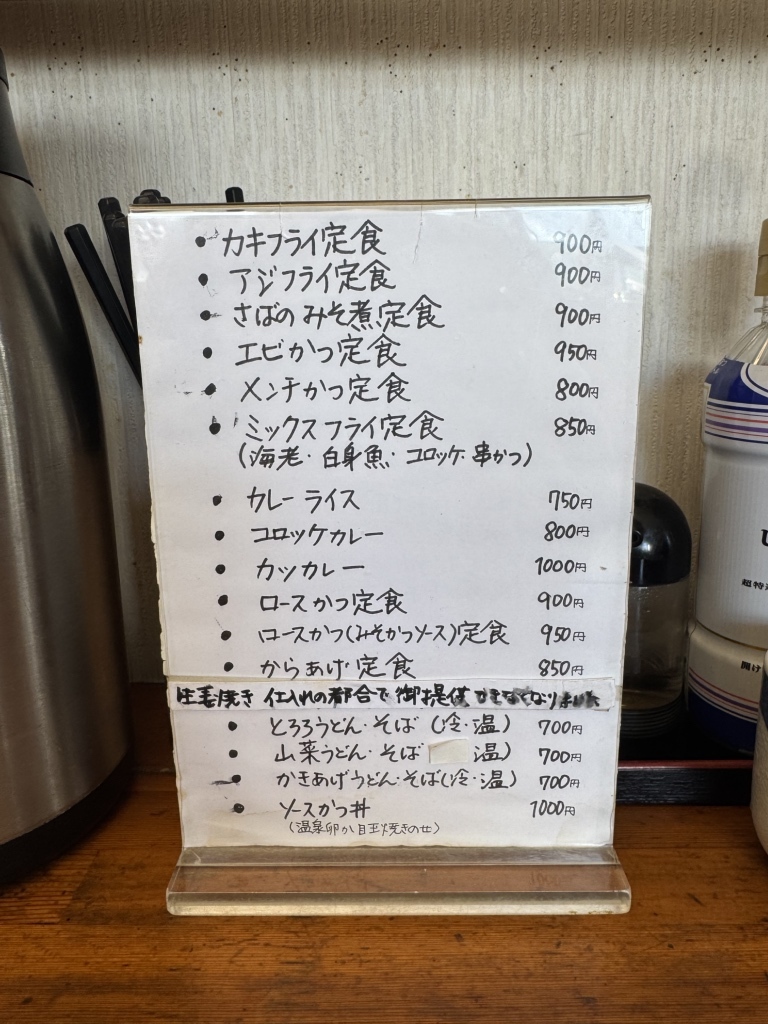 ・カキフライ定食 900円
・アジフライ定食 900円
・さばのみそ煮定食 900円
・エビかつ定食 950円
・メンチかつ定食 800円
・ミックスフライ定食 850円
(海老・白身魚・コロッケ・串かつ)
・カレーライス 750円
・コロッケカレー 800円
・カツカレー 1000円
・ロースかつ定食 900円
・ロースかつ(みそかつソース)定食 950円
・からあげ定食 850円
焼き 仕入れの都合で 御提供
・とろろうどん・そば(冷・温) 700円
・山菜うどん・そば 温) 700円
・かきあげうどん・そば(冷・温) 700円
・ソースかつ丼 1000円
(温泉卵か目玉焼きのせ)
超特
開け